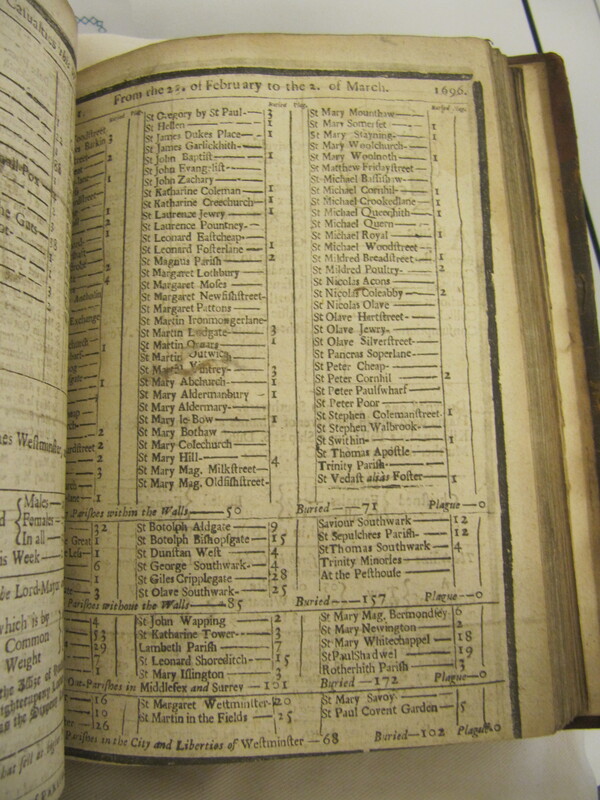 From the 2 . of February to the 2. of March. 1696.
Buried Plag.
St Gregory by St Paul— 3
St Hellen — 1
St James Dukes Place— 1
St James Garlickhith—
St John Baptist— 1
St John Evangelist—
St John Zachary—
St Katharine Coleman— 1
St Katharine Creechurch— 1
St Laurence Jewry— 1
St Laurence Pountney—
St Leonard Eastcheap—
St Leonard Fosterlane— 1
St Magnus Parish— 2
St Margaret Lothbury—
St Margaret Moses—
St Margaret Newfishstreet-
St Margaret Pattons—
St Martin Ironmongerlane-
St Martin Ludgate— 3
St Martin Orgars— 1
St Martin Outwich—
St Martin Vintrey— 3
St Mary Abchurch— 1
St Mary Aldermanbury— 1
St Mary Aldermary—
St Mary le Bow— 1
St Mary Bothaw—
St Mary Colechurch—
St Mary Hill— 4
St Mary Mag. Milkstreet—
St Mary Mag. Oldfishstreet-
Buried Plag.
St Mary Mounthaw—
St Mary Somerset— 1
St Mary Stayning— 1
St Mary Woolchurch—
St Mary Woolnoth— 1
St Matthew Fridaystreet—
St Michael Bassishaw—
St Michael Cornhil— 1
St Michael Crookedlane— 1
St Michael Queenhith— 1
St Michael Quern—
St Michael Royal— 1
St Michael Woodstreet—
St Mildred Breadstreet— 1
St Mildred Poultry— 2
St Nicolas Acons—
St Nicolas Coleabby— 2
St Nicolas Olave—
St Olave Hartstreet—
St Olave Jewry—
St Olave Silverstreet—
St Pancras Soperlane—
St Peter Cheap—
St Peter Cornhil— 2
St Peter Paulswharf—
St Peter Poor—
St Stephen Colemanstreet- 1
St Stephen Walbrook—
St Swithin— 1
St Thomas Apostle—
Trinity Parish—
St Vedast alias Foster— 1
Parishes within the Walls— 50 Buried— 71 Plague—0
St Botolph Aldgate— 9
St Botolph Bishopsgate— 15
St Dunstan West— 4
St George Southwark— 4
St Giles Cripplegate— 28
St Olave Southwark— 25
Saviour Southwark— 12
St Sepulchres Parish— 12
St Thomas Southwark— 4
Trinity Minories—
At the Pesthouse—
Parishes without the Walls— 85 Buried— 157 Plague—0
St John Wapping— 2
St Katharine Tower— 3
Lambeth Parish— 7
St Leonard Shoreditch— 15
St Mary Islington— 3
St Mary Mag. Bermondsey 6
St Mary Newington— 2
St Mary Whitechappel— 18
St Paul Shadwel— 19
Rotherhith Parish— 3
Out-Parishes in Middlesex and Surrey — 101 Buried— 172 Plague—0
St Margaret Westminster- 20
St Martin in the Fields— 25
St Mary Savoy—
St Paul Covent Garden— 5
Parishes in the City and Liberties of Westminster — 68 Buried—102 Plague—0
Males—
Females—
In all—
Week—
the Lord-Mayor
which is by
Common
Weight